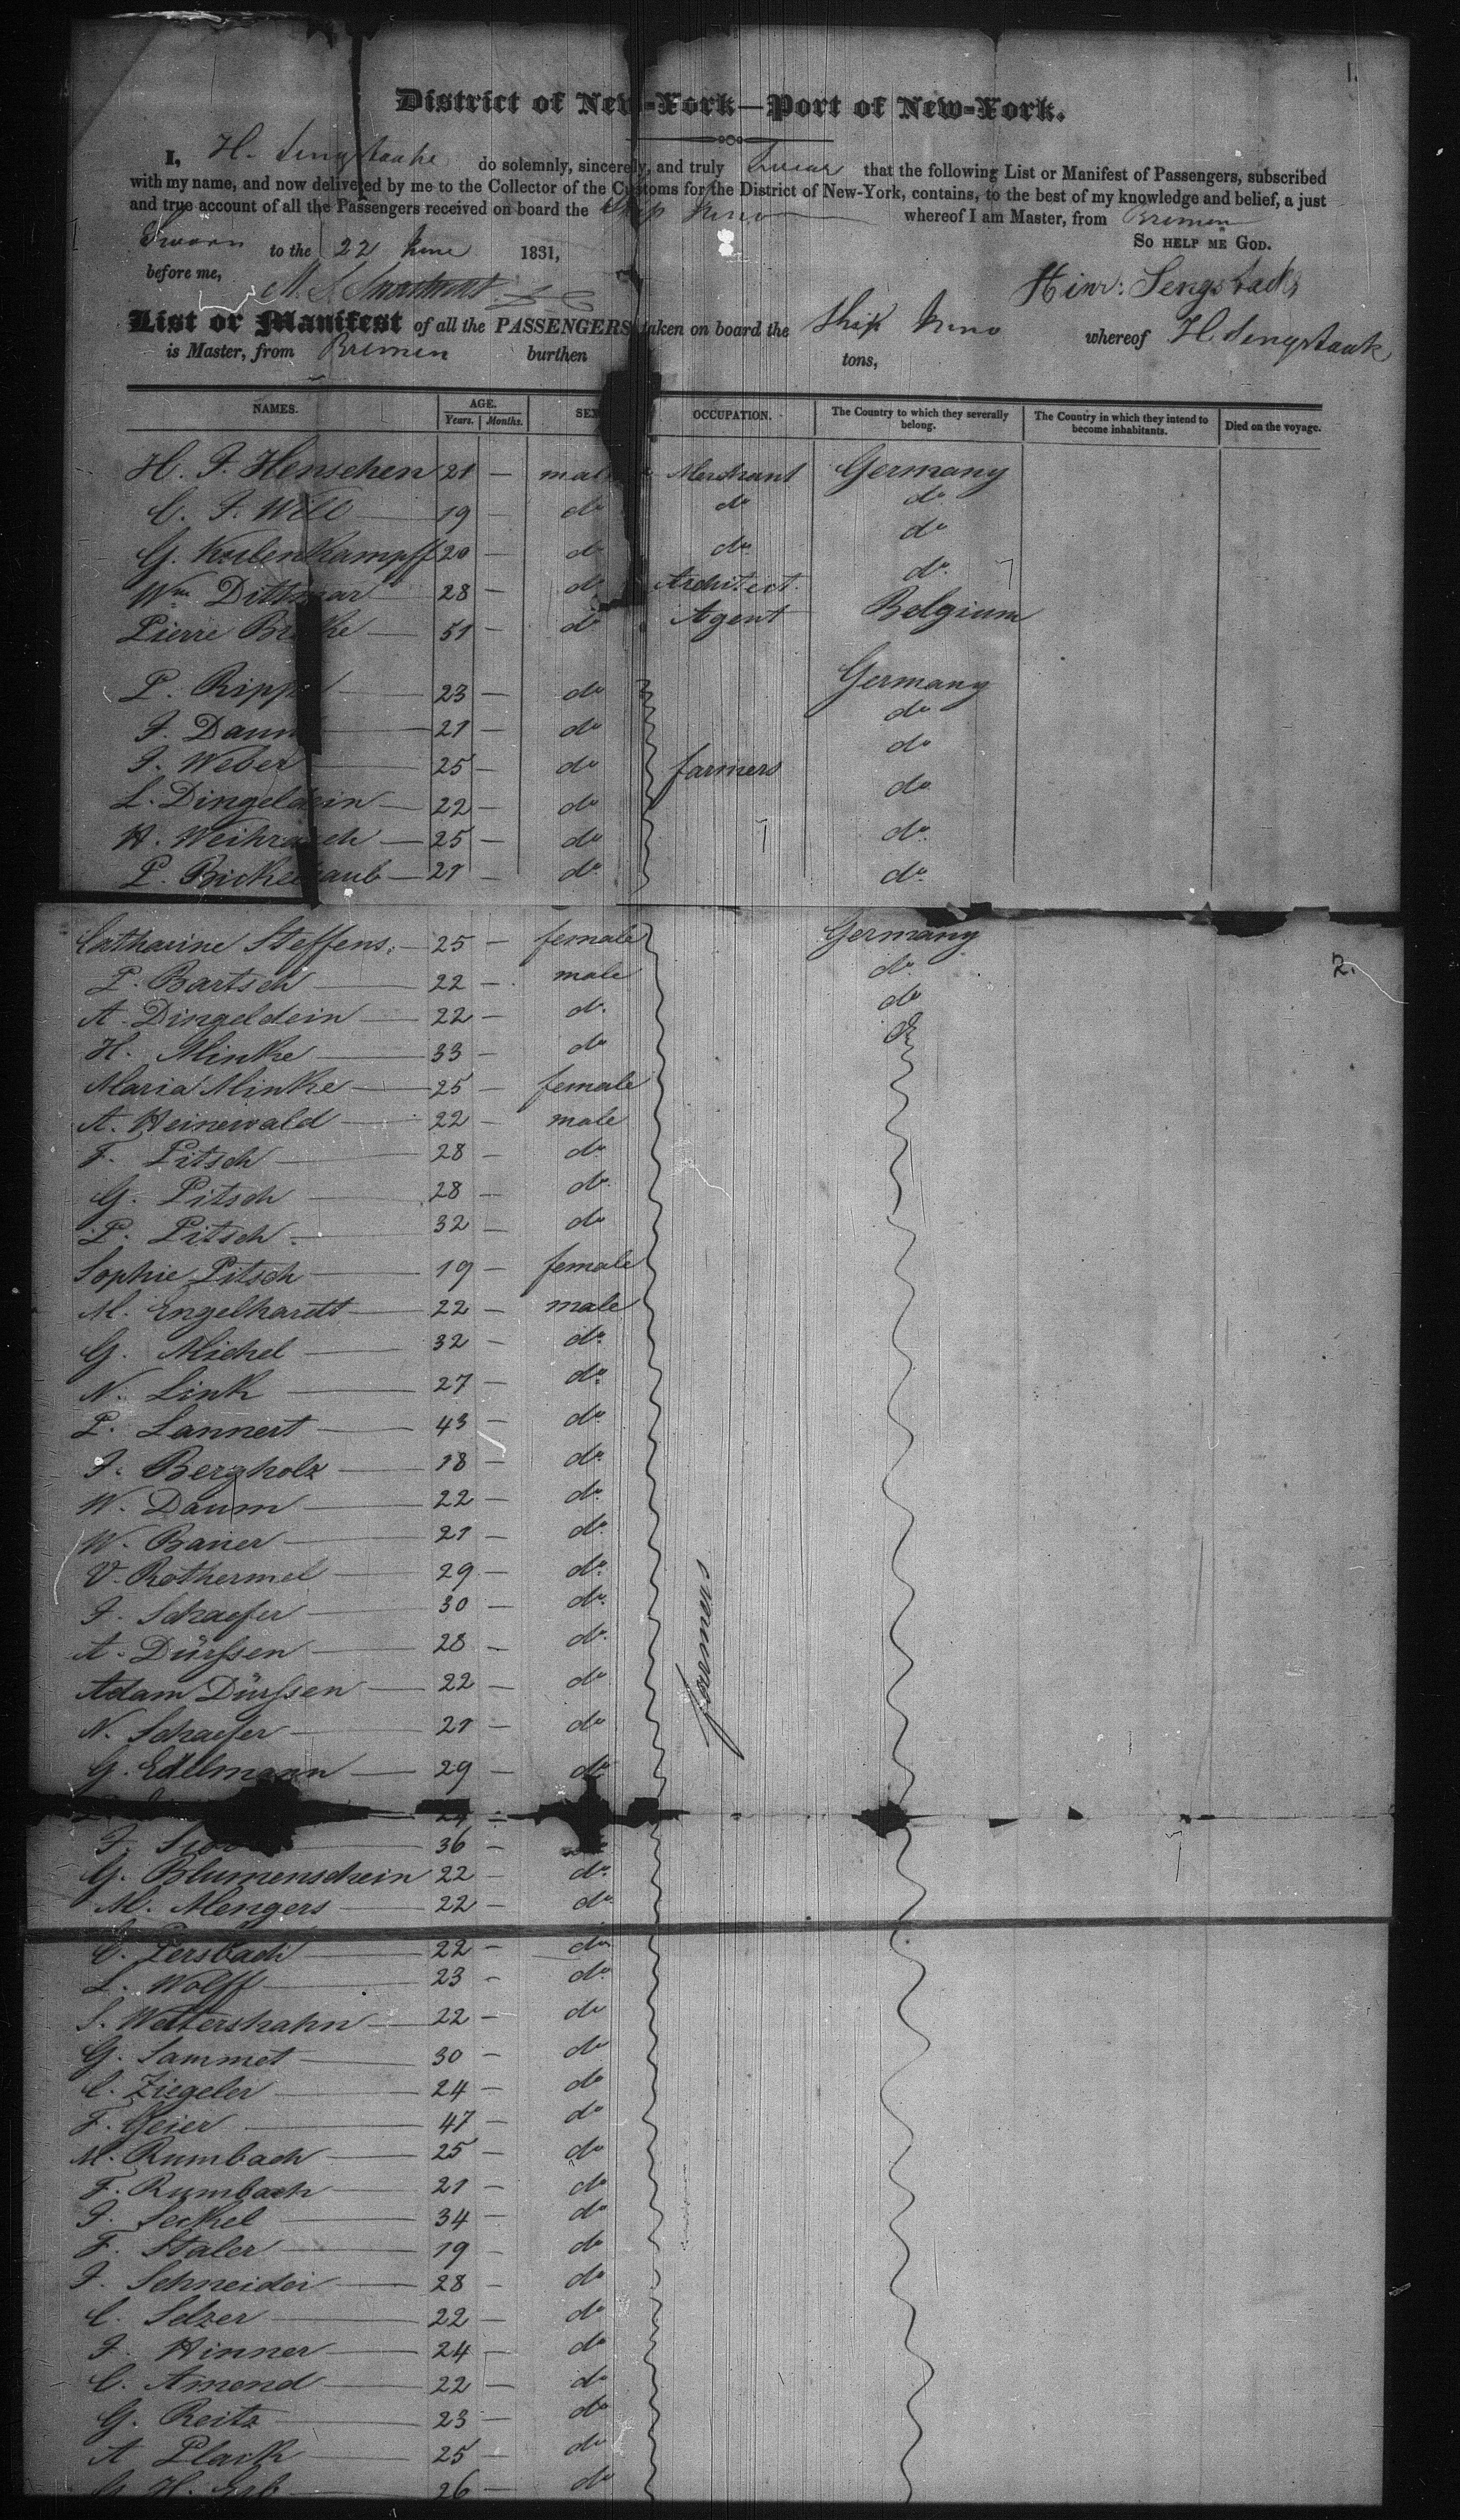 1.
District of New-York—Port of New-York.
I, H. Sengstacke do solemnly, sincerely, and truly swear that the following List or Manifest of Passengers, subscribed
with my name, and now delivered by me to the Collector of the Customs for the District of New-York, contains, to the best of my knowledge and belief, a just
and true account of all the Passengers received on board the Ship Juno whereof I am Master, from Bremen
Sworn to the 22 June 1831, SO HELP ME GOD.
before me,
Hinr: Sengstack
List or Manifest of all the PASSENGERS taken on board the Ship Juno whereof H. Sengstack
is Master, from Bremen burthen tons,
NAMES. AGE. SEX OCCUPATION. The Country to which they severally belong. The Country in which they intend to become inhabitants. Died on the voyage.
Years. Months.
H. F. Henschen 21 — male Merchant Germany
C. F. Will 19 — do do do
G. Kulenkampff 20 — do do do
Wm Dittmar 28 — do Architect do
Pierre 51 — do Agent Belgium
P. Rippel 23 — do Germany
J. Daum 21 — do do
J. Weber 25 — do farmers do
L. Dingeldein 22 — do do
H. Weihrauch 25 — do do
P. Bickelhaub 21 — do do
Catharine Steffens 25 — female Germany
2.
P. Bartsch 22 — male do
A. Dingeldein 22 — do do
H. Minke 33 — do do
Maria Minke 25 — female
A. Heinewald 22 — male
F. Pitsch 28 — do
G. Pitsch 28 — do
P. Pitsch 32 — do
Sophie Pitsch 19 — female
M. Engelhardt 22 — male
G. Michel 32 — do
N. Link 27 — do
P. Lannert 43 — do
J. Bergholz 18 — do
W. Daum 22 — do
W. Bauer 21 — do
V. Rothermel 29 — do
J. Schaefer 30 — do farmers
A. Dürssen 28 — do
Adam Dürssen 22 — do
N. Schaefer 21 — do
G. Edelmann 29 — do
24 —
F. 36 —
G. Blumenschein 22 — do
M. Mengers 22 — do
C. Persbach 22 — do
L. Wolff 23 — do
S. Wettershahn 22 — do
G. Sammet 30 — do
C. Ziegeler 24 — do
F. Geier 47 — do
M. Rumbach 25 — do
F. Rumbach 21 — do
J. Seckel 34 — do
F. Staler 19 — do
J. Schneider 28 — do
C. Selzer 22 — do
J. Hinner 24 — do
C. Amend 22 — do
G. Reitz 23 — do
A Plack 25 — do
G. H. Erb 26 — do